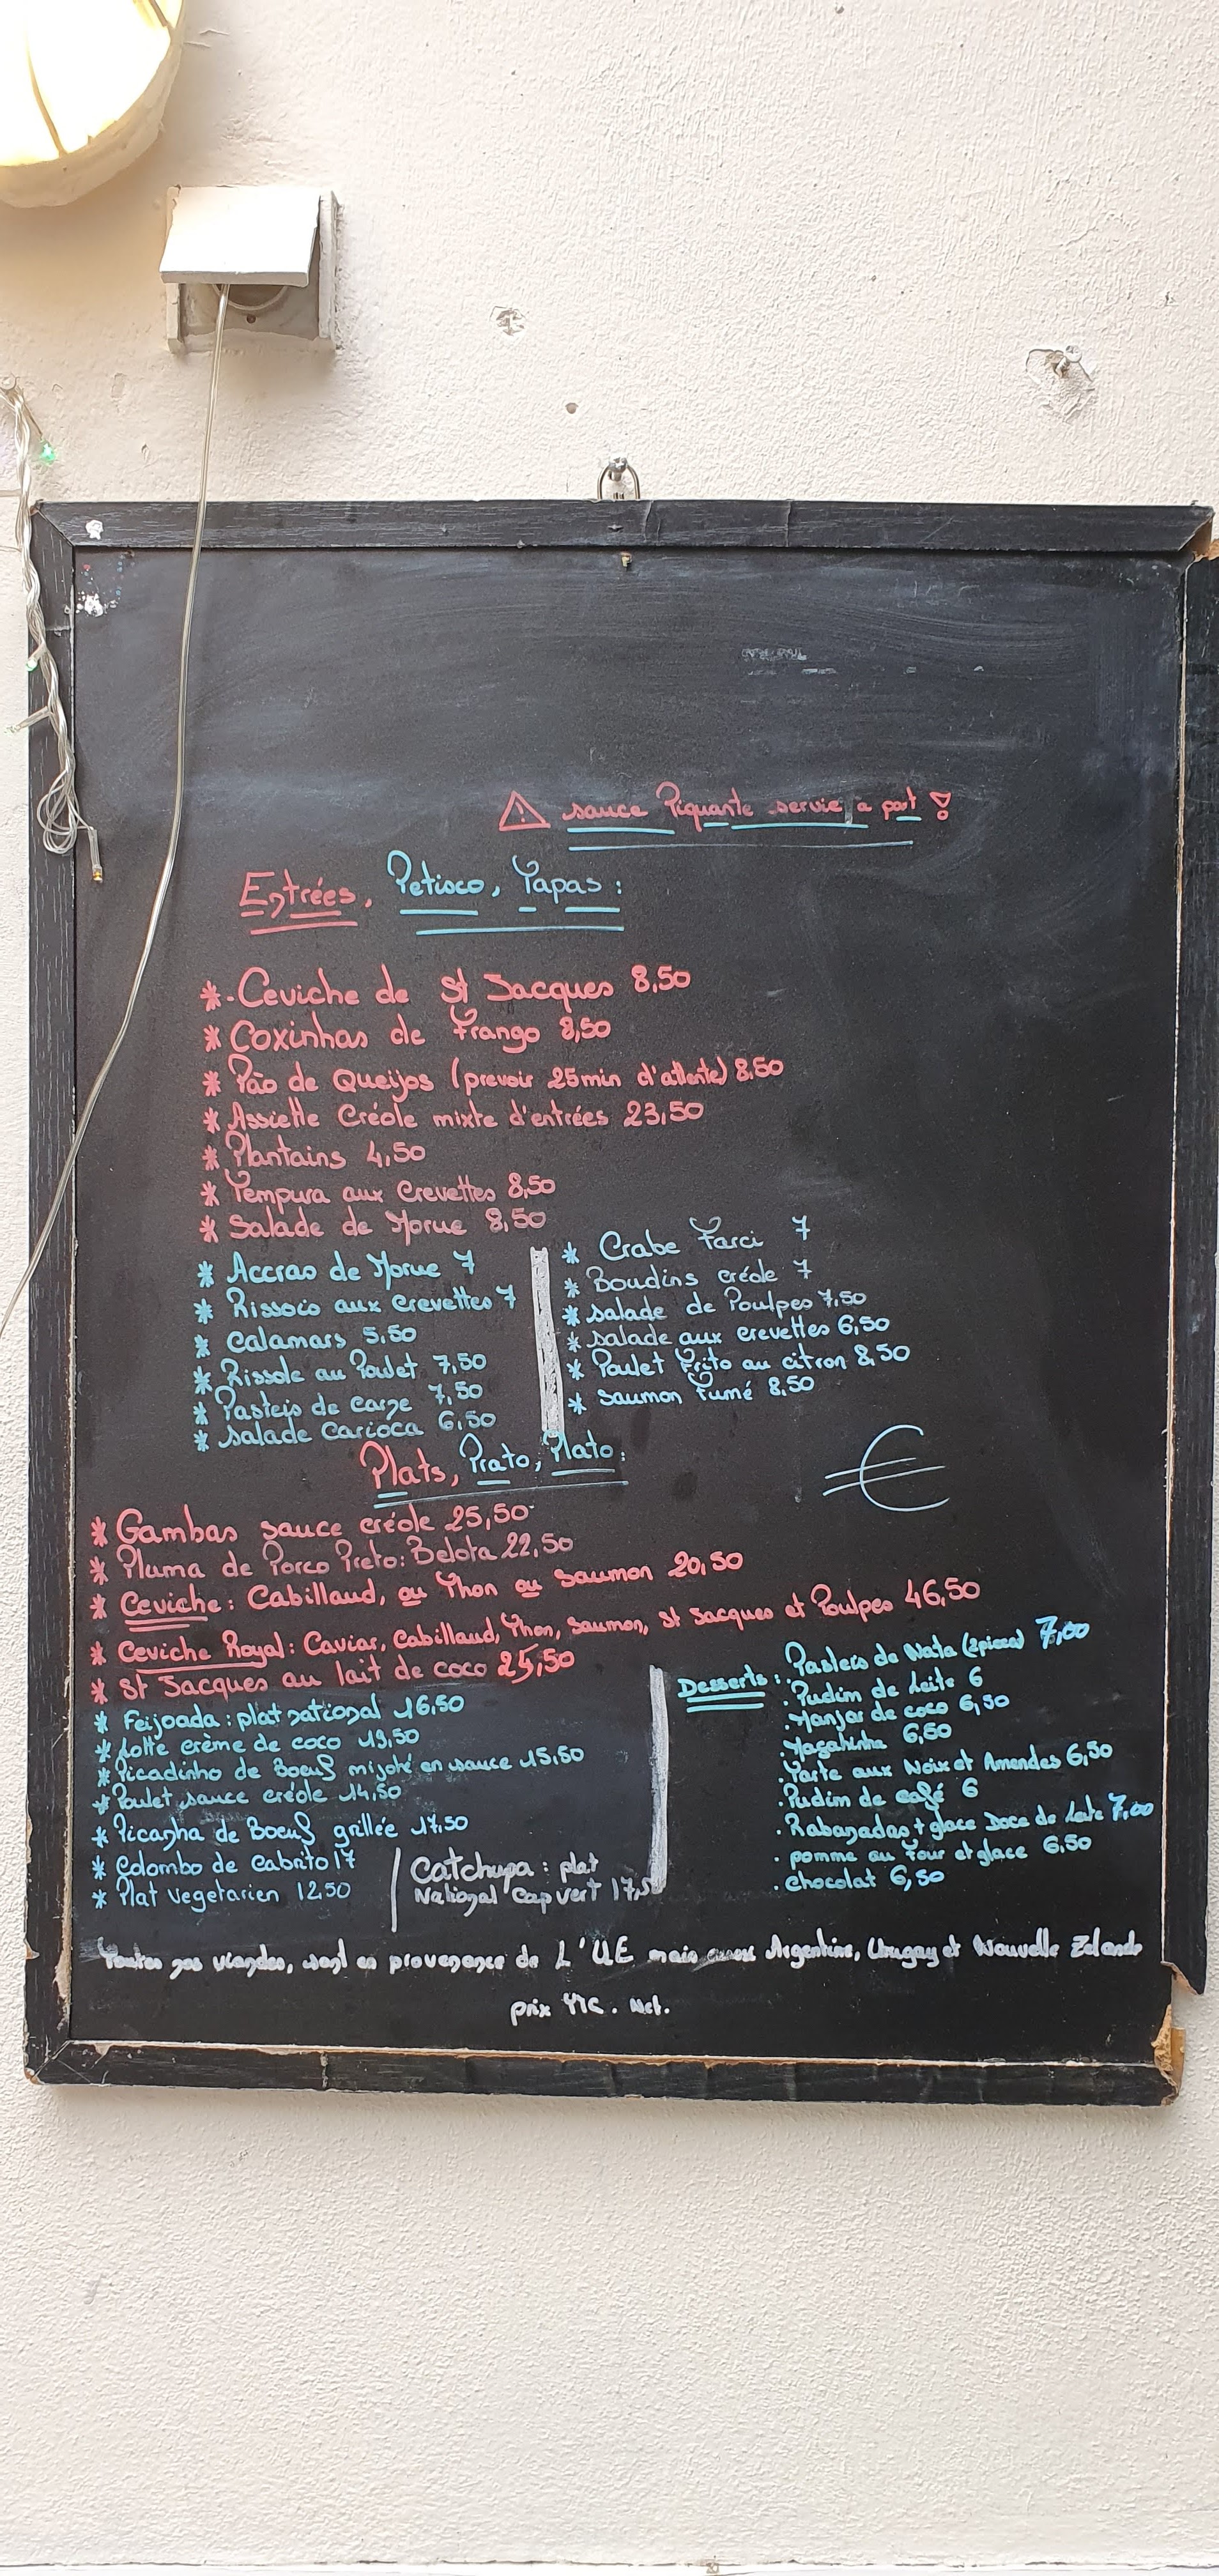 ⚠ sauce Piquante servie a part !
Entrées, Petisco, Tapas :
* Ceviche de St Jacques 8,50
* Coxinhas de Frango 8,50
* Pão de Queijos (prevoir 25min d'attente) 8.50
* Assiette Créole mixte d'entrées 23,50
* Plantains 4,50
* Tempura aux Crevettes 8,50
* Salade de Morue 8,50
* Accras de Morue 7
* Rissois aux crevettes 7
* Calamars 5,50
* Rissole au Poulet 7,50
* Pasteis de carne 7,50
* Salade Carioca 6,50
* Crabe Farci 7
* Boudins créole 7
* Salade de Poulpes 7,50
* Salade aux crevettes 6,50
* Poulet Frito au citron 8,50
* Saumon Fumé 8,50
Plats, Prato, Plato :
€
* Gambas sauce créole 25,50
* Pluma de Porco Preto : Belota 22,50
* Ceviche : Cabillaud, ou Thon ou Saumon 20,50
* Ceviche Royal : Caviar, Cabillaud, Thon, Saumon, St Jacques et Poulpes 46,50
* St Jacques au lait de coco 25,50
* Feijoada : plat national 16,50
* Lotte crème de coco 19,50
* Picadinho de Boeuf mijoté en sauce 15,50
* Poulet sauce créole 14,50
* Picanha de Boeuf grillée 17,50
* Colombo de Cabrito 17
* Plat vegetarien 12,50
Catchupa : plat
National Cap vert 17,5
Desserts : Pasteis de Nata (2pieces) 7,00
. Pudim de Leite 6
. Manjar de coco 6,50
. 6,50
. Tarte aux Noix et Amendes 6,50
. Pudim de café 6
. Rabanadas + glace Doce de Leite 7,00
. pomme au Four et glace 6,50
. Chocolat 6,50
Toutes nos viandes, sont en provenance de L'UE mais aussi Argentine, Urugay et Nouvelle Zelande
prix TTC. Net.